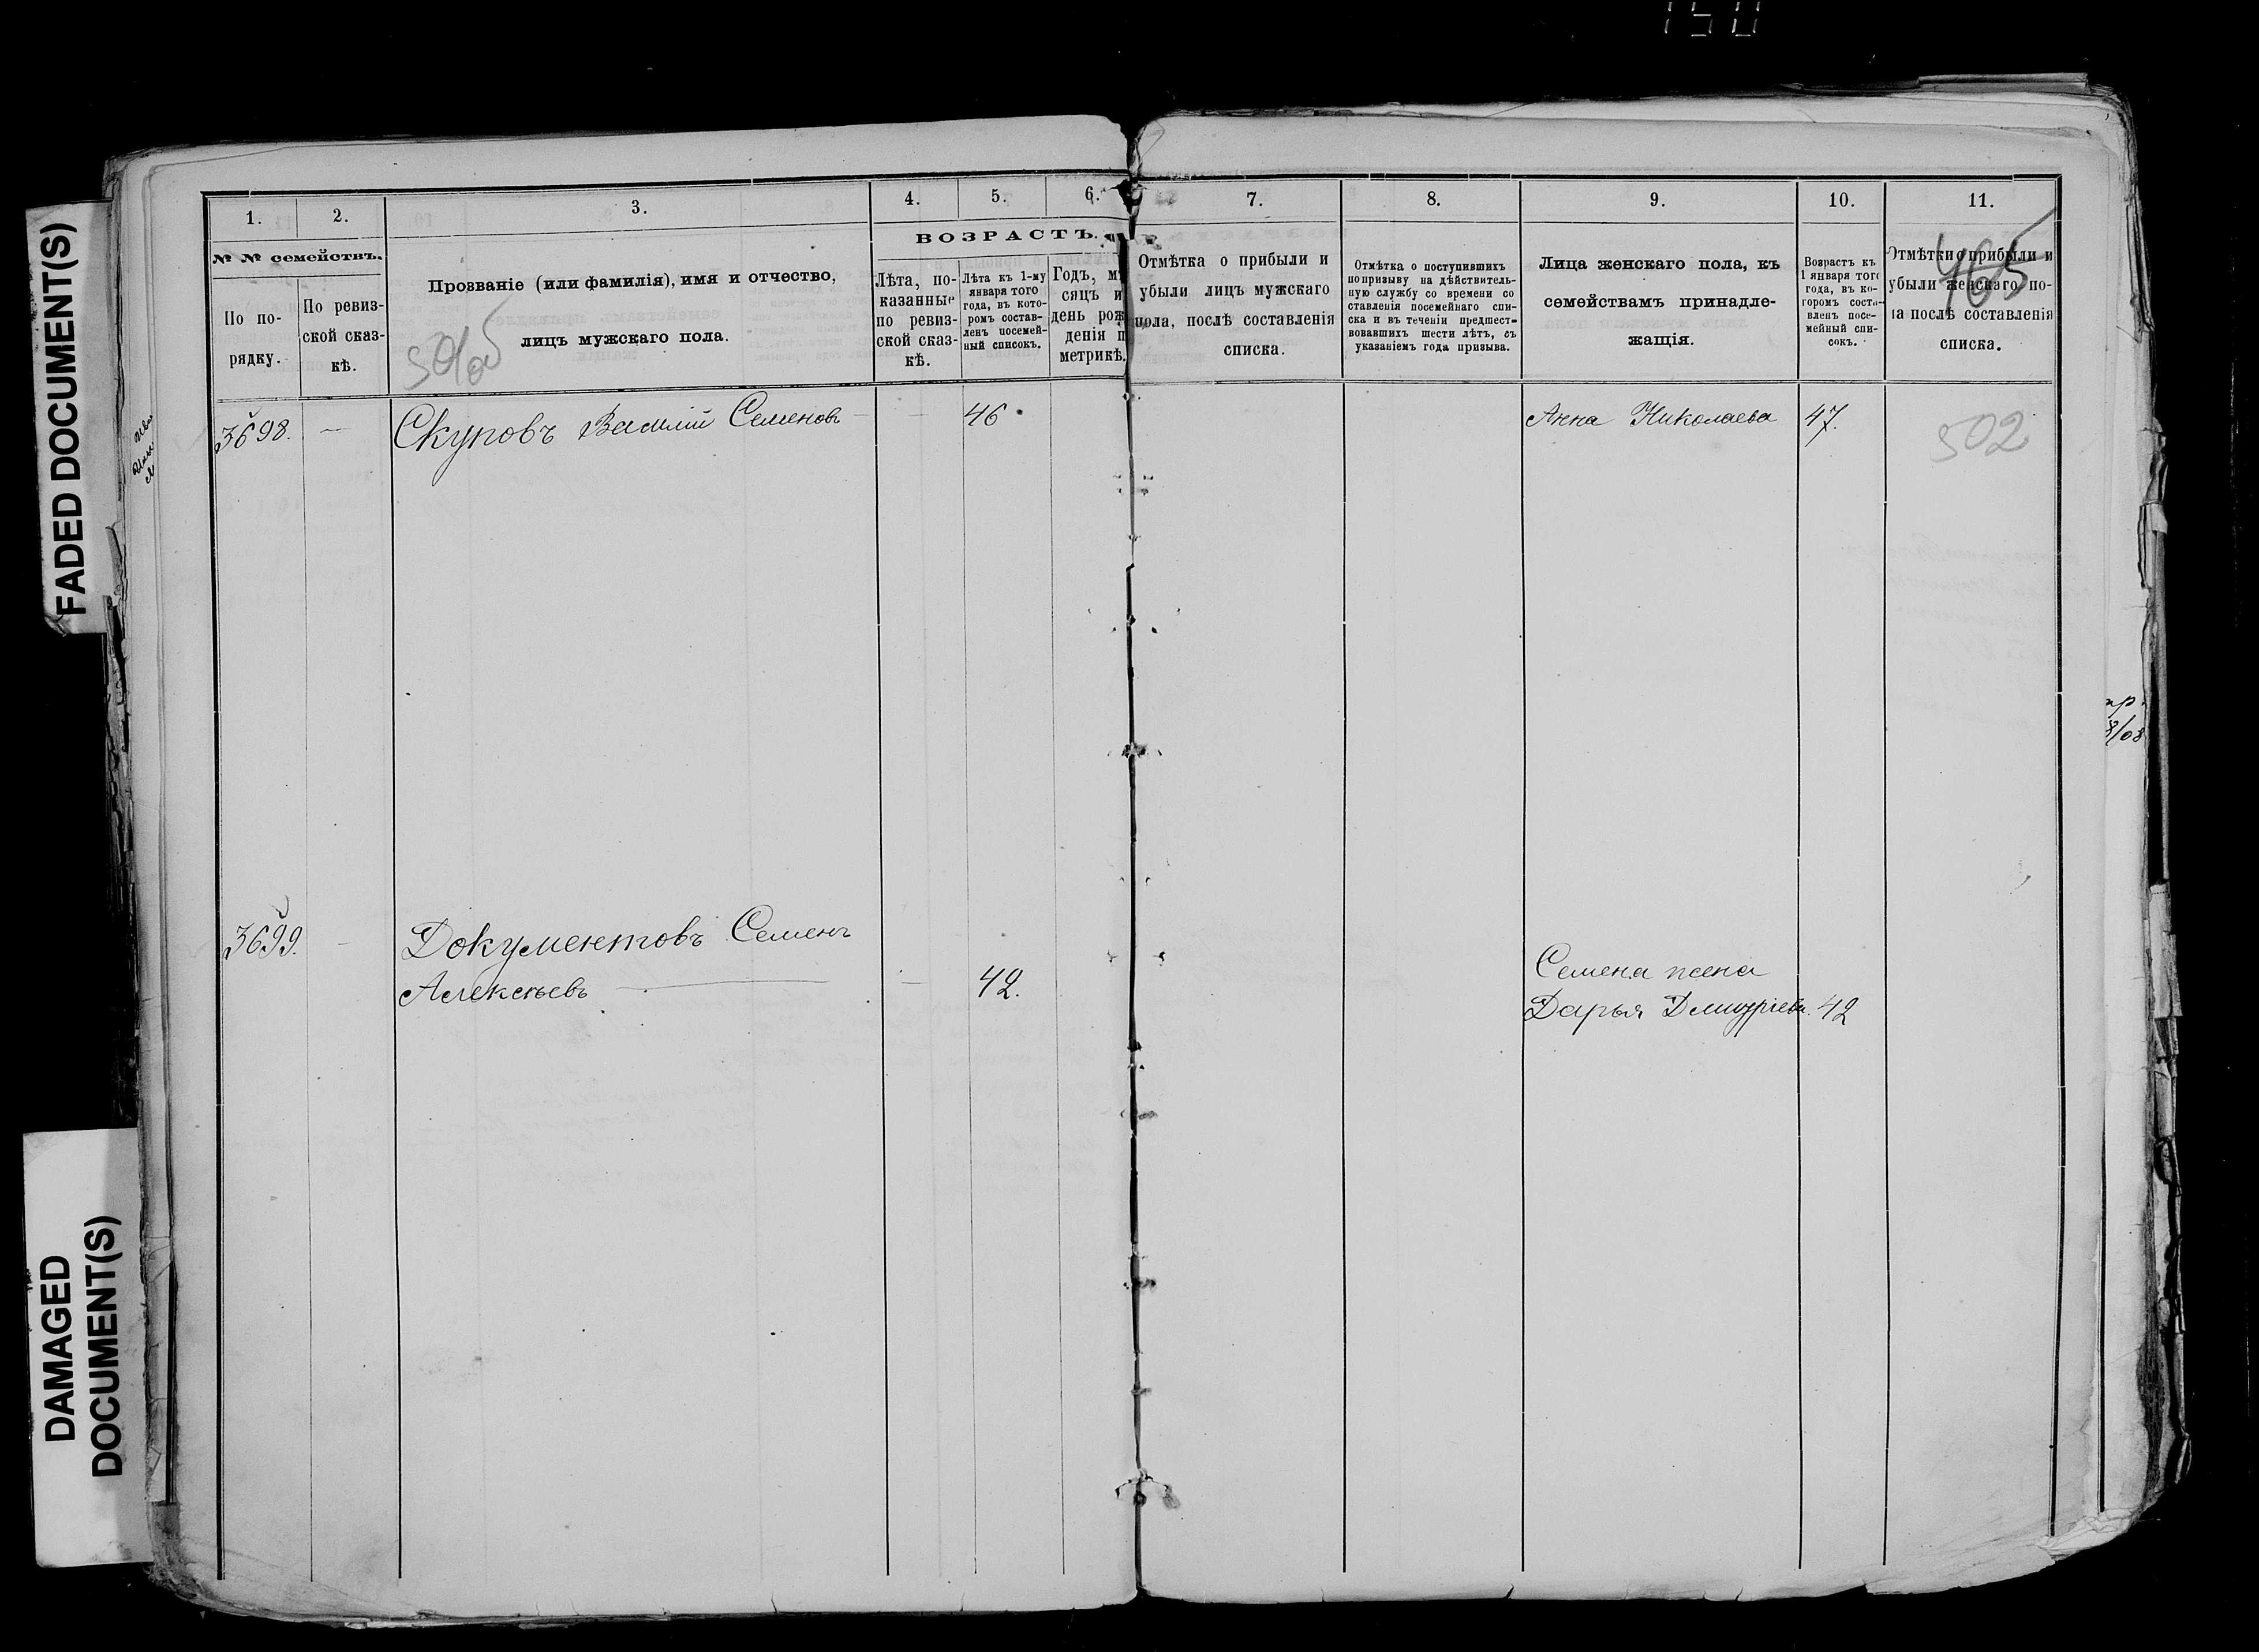 150
FADED DOCUMENT(S)
DAMAGED
DOCUMENT(S)
1.
2.
3.
4.
5.
6.
№ № семействъ.
По по-
рядку.
По ревиз-
ской сказ-
кѣ.
Прозваніе (или фамилія), имя и отчество,
лицъ мужскаго пола.
ВОЗРАСТЪ.
Лѣта, по-
казанные
по ревиз-
ской сказ-
кѣ.
Лѣта къ 1-му
января того
года, въ кото-
ромъ состав-
ленъ посемей-
ный списокъ.
Годъ, мѣ
сяцъ и
день рож
денія п
метрикѣ.
3698. — Скуповъ Василій Семеновъ — — 46
3699. — Документовъ Семенъ
Алексѣевъ — — 42.
7.
8.
9.
10.
11.
Отмѣтка о прибыли и
убыли лицъ мужскаго
пола, послѣ составленія
списка.
Отмѣтка о поступившихъ
по призыву на дѣйствитель-
ную службу со времени со
ставленія посемейнаго спи-
ска и въ теченіи предшест-
вовавшихъ шести лѣтъ, съ
указаніемъ года призыва.
Лица женскаго пола, къ
семействамъ принадле-
жащія.
Возрастъ къ
1 января того
года, въ ко-
торомъ соста-
вленъ посе-
мейный спи-
сокъ.
Отмѣтки о прибыли и
убыли женскаго по-
ла послѣ составленія
списка.
465
502
Анна Николаева 47.
Семена жена
Дарья Дмитріева. 42